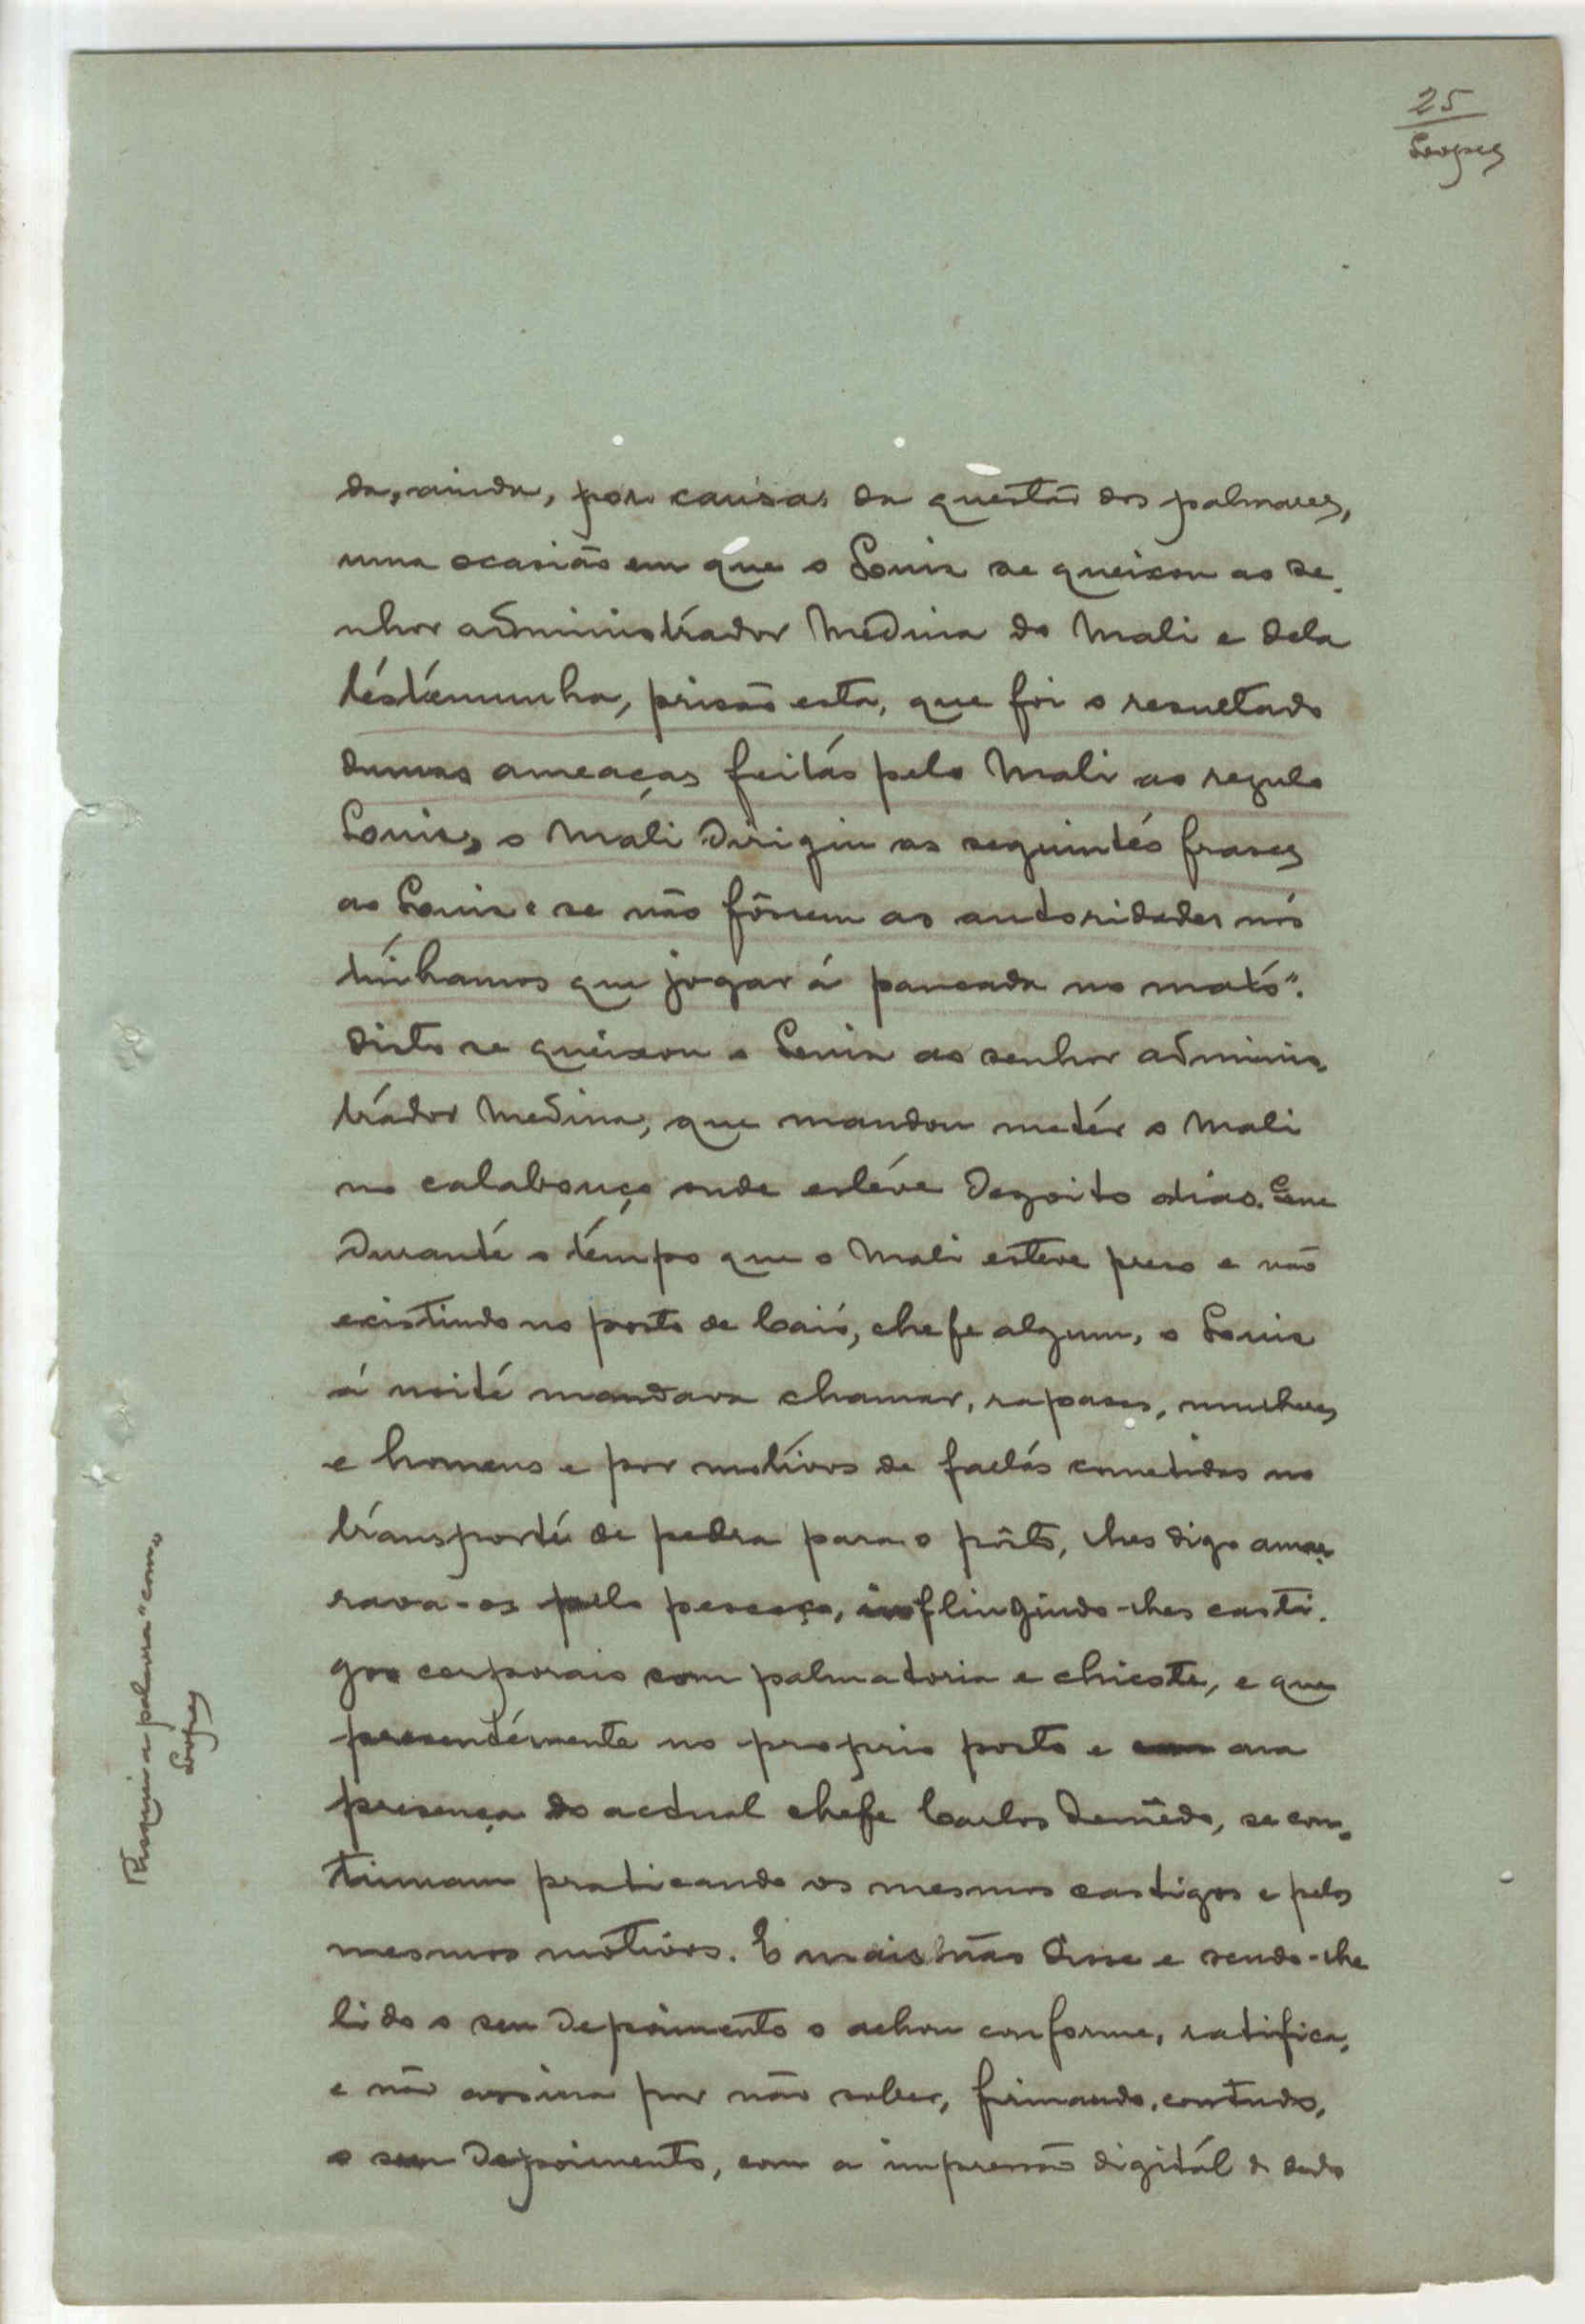 25
Lopes
da, ainda, por causa da questão dos palmares,
uma ocasião em que o Louis se queixou ao se-
nhor administrador Medina do Mali e dela
téstémunha, prisão esta, que foi o resultado
dumas ameaças feitás pelo Mali ao regulo
Louis, o Mali dirigiu as seguintés frases
ao Louis "se não fôssem as autoridades nós
tinhamos que jogar á pancada no mató".
disto se queixou o Louis ao senhor adminis-
trador Medina, que mandou metér o Mali
no calabouço onde estéve dezoito dias. Que
Duranté o témpo que o Mali esteve preso e não
existindo no posto de Caió, chefe algum, o Louis
á noité mandava chamar, rapases, mulheres
e homens e por motivos de faltás cometidas no
transporté de pedra para o pôrto, lhes digo amar-
rava-os pelo pescoço, inflingindo-lhes casti-
gos corporais com palmatoria e chicote, e que
presentémente no proprio posto e na
presença do actual chefe Carlos Semêdo, se con-
tinuam praticando os mesmos castigos e pelos
mesmos motivos. E mais não disse e sendo-lhe
lido o seu depoimento o achou conforme, ratifica,
e não assina por não saber, firmando, contudo,
o seu depoimento, com a impressão digitál do dedo
a palavra "com"
Lopes